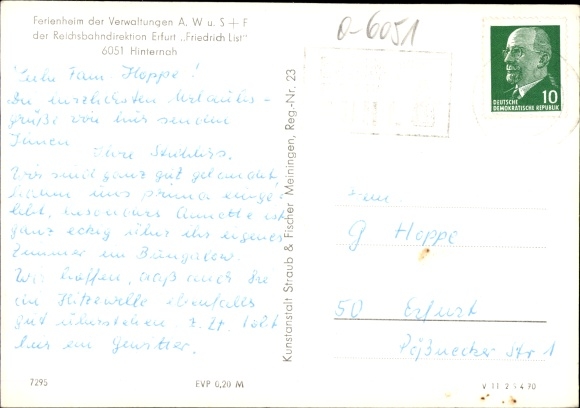 Ferienheim der Verwaltungen A, W u. S + F
der Reichsbahndirektion Erfurt „Friedrich List"
6051 Hinternah
Liebe Fam. Hoppe!
Die herzlichsten Urlaubs-
grüße von hier senden
Ihnen
Ihre
Wir sind ganz gut gelandet,
haben uns prima einge-
lebt, besonders Annette ist
ganz eckig über ihr eigenes
Zimmer im Bungalow.
Wir hoffen, daß auch Sie
die Hitzewelle ebenfalls
gut überstehen. z. Zt. tobt
hier ein Gewitter.
7295
EVP 0,20 M
Kunstanstalt Straub & Fischer Meiningen, Reg.-Nr. 23
O-6051
10
DEUTSCHE
DEMOKRATISCHE REPUBLIK
Fam.
G Hoppe
50 Erfurt
Pößnecker Str 1
V 11 2 5 4 70